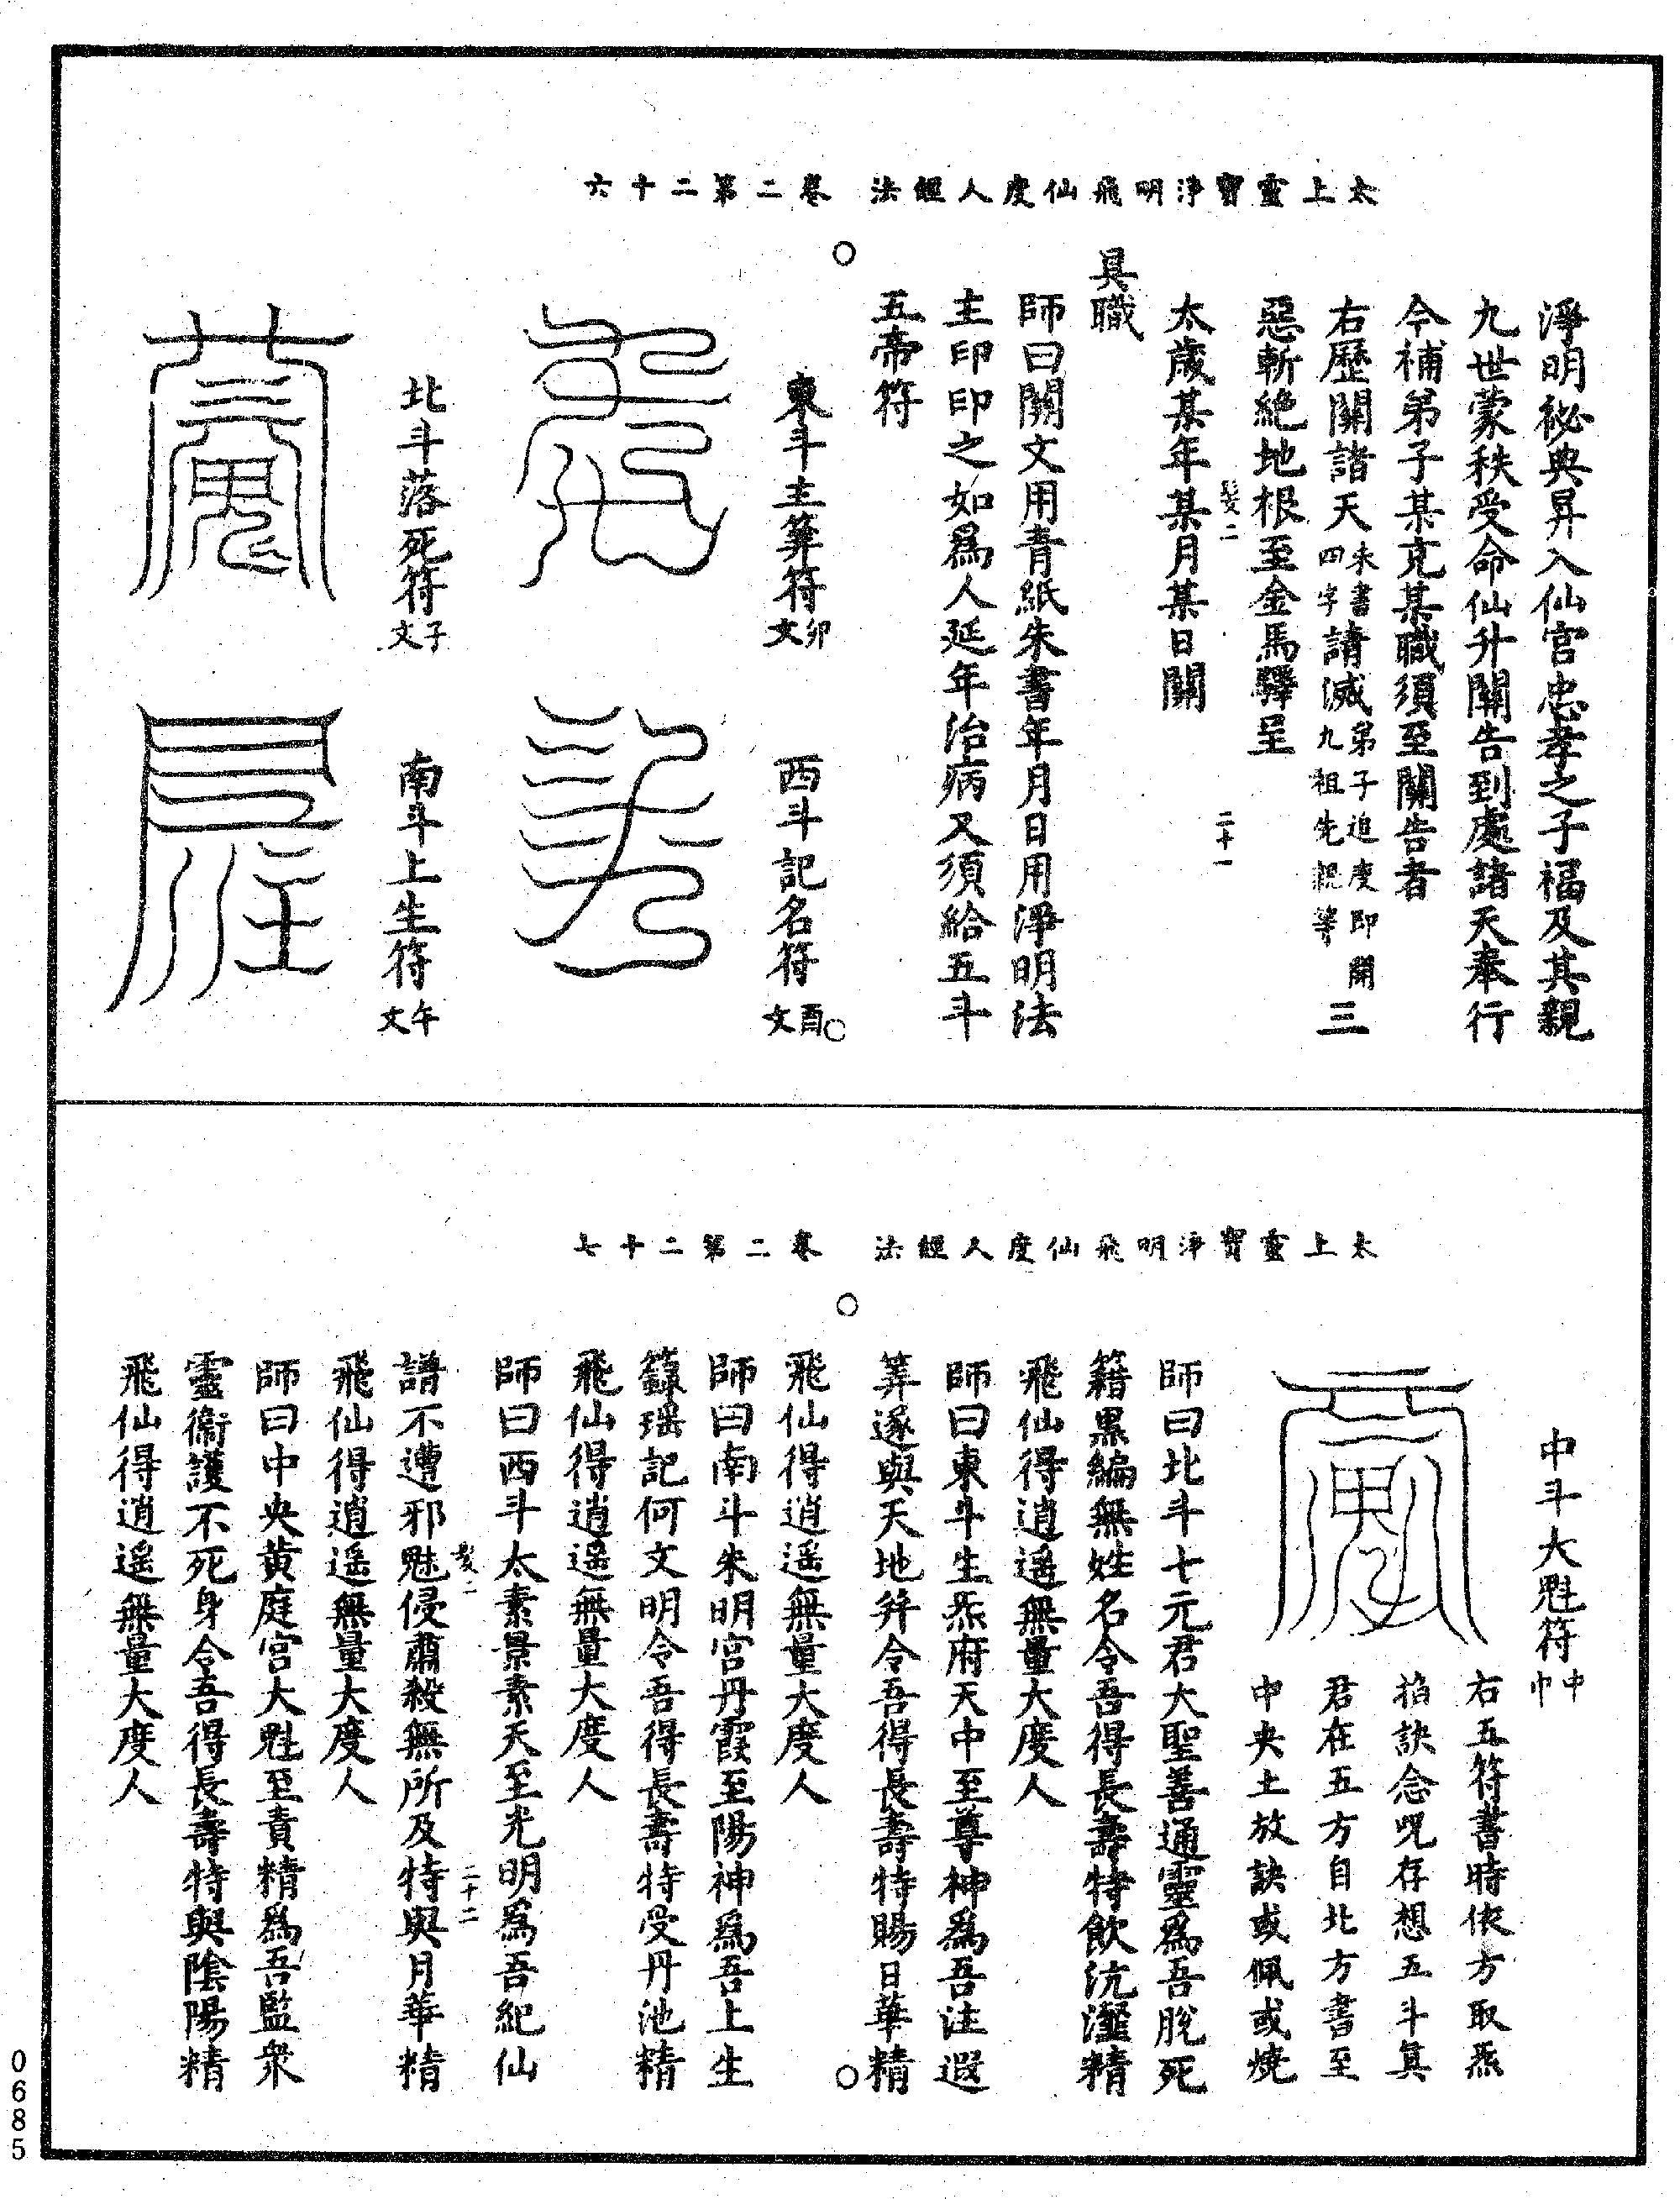 太上靈寶淨明飛仙度人經法 卷二第二十六
淨明祕典昇入仙官忠孝之子福及其親
九世蒙秩受命仙升關告到處諸天奉行
今補弟子某充某職須至關告者
右歷關諸天朱書四字請滅弟子追度即開九祖先親等三
惡斬絶地根至金馬驛呈
髮二 二十一
太歲某年某月某日關
具職
師曰關文用青紙朱書年月日用淨明法
主印印之如爲人延年治病又須給五斗
五帝符
東斗主筭符卯文
西斗記名符酉文
北斗落死符子文
南斗上生符午文
太上靈寶淨明飛仙度人經法 卷二第二十七
中斗大魁符中
右五符書時依方取炁
掐訣念咒存想五斗眞
君在五方自北方書至
中央土放訣或佩或燒
師曰北斗七元君大聖善通靈爲吾脫死
籍黑編無姓名令吾得長壽特飲沆瀣精
飛仙得逍遙無量大度人
師曰東斗生炁府天中至尊神爲吾注遐
筭遂與天地并令吾得長壽特賜日華精
飛仙得逍遙無量大度人
師曰南斗朱明宮丹霞至陽神爲吾上生
籙瑶記何文明令吾得長壽特受丹池精
飛仙得逍遙無量大度人
師曰西斗太素景素天至光明爲吾紀仙
髮二 二十二
譜不遭邪魅侵肅殺無所及特與月華精
飛仙得逍遙無量大度人
師曰中央黄庭宫大魁至貴精爲吾監衆
靈衞護不死身令吾得長壽特與陰陽精
飛仙得逍遙無量大度人
0685